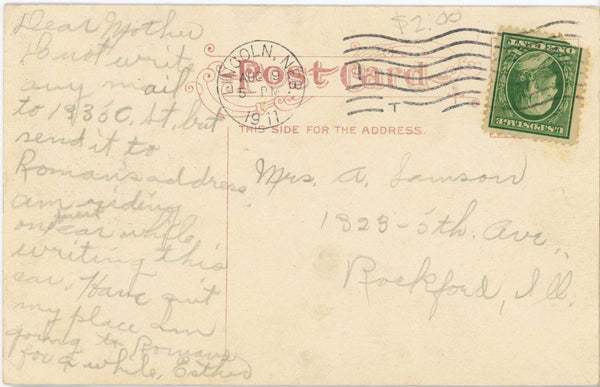 Dear Mother
Do not write
any mail
to 1336 C. St, but
send it to
Roman's address
am riding
on street car while
writing this
car. Have quit
my place Am
going to Romans
for a while, Esther
$2.00
LINCOLN, NEB.
9
5-PM
1911
T
Post Card
THIS SIDE FOR THE ADDRESS.
Mrs. A. Samson
1323-5th. Ave.,
Rockford, Ill.
U.S. POSTAGE
ONE CENT